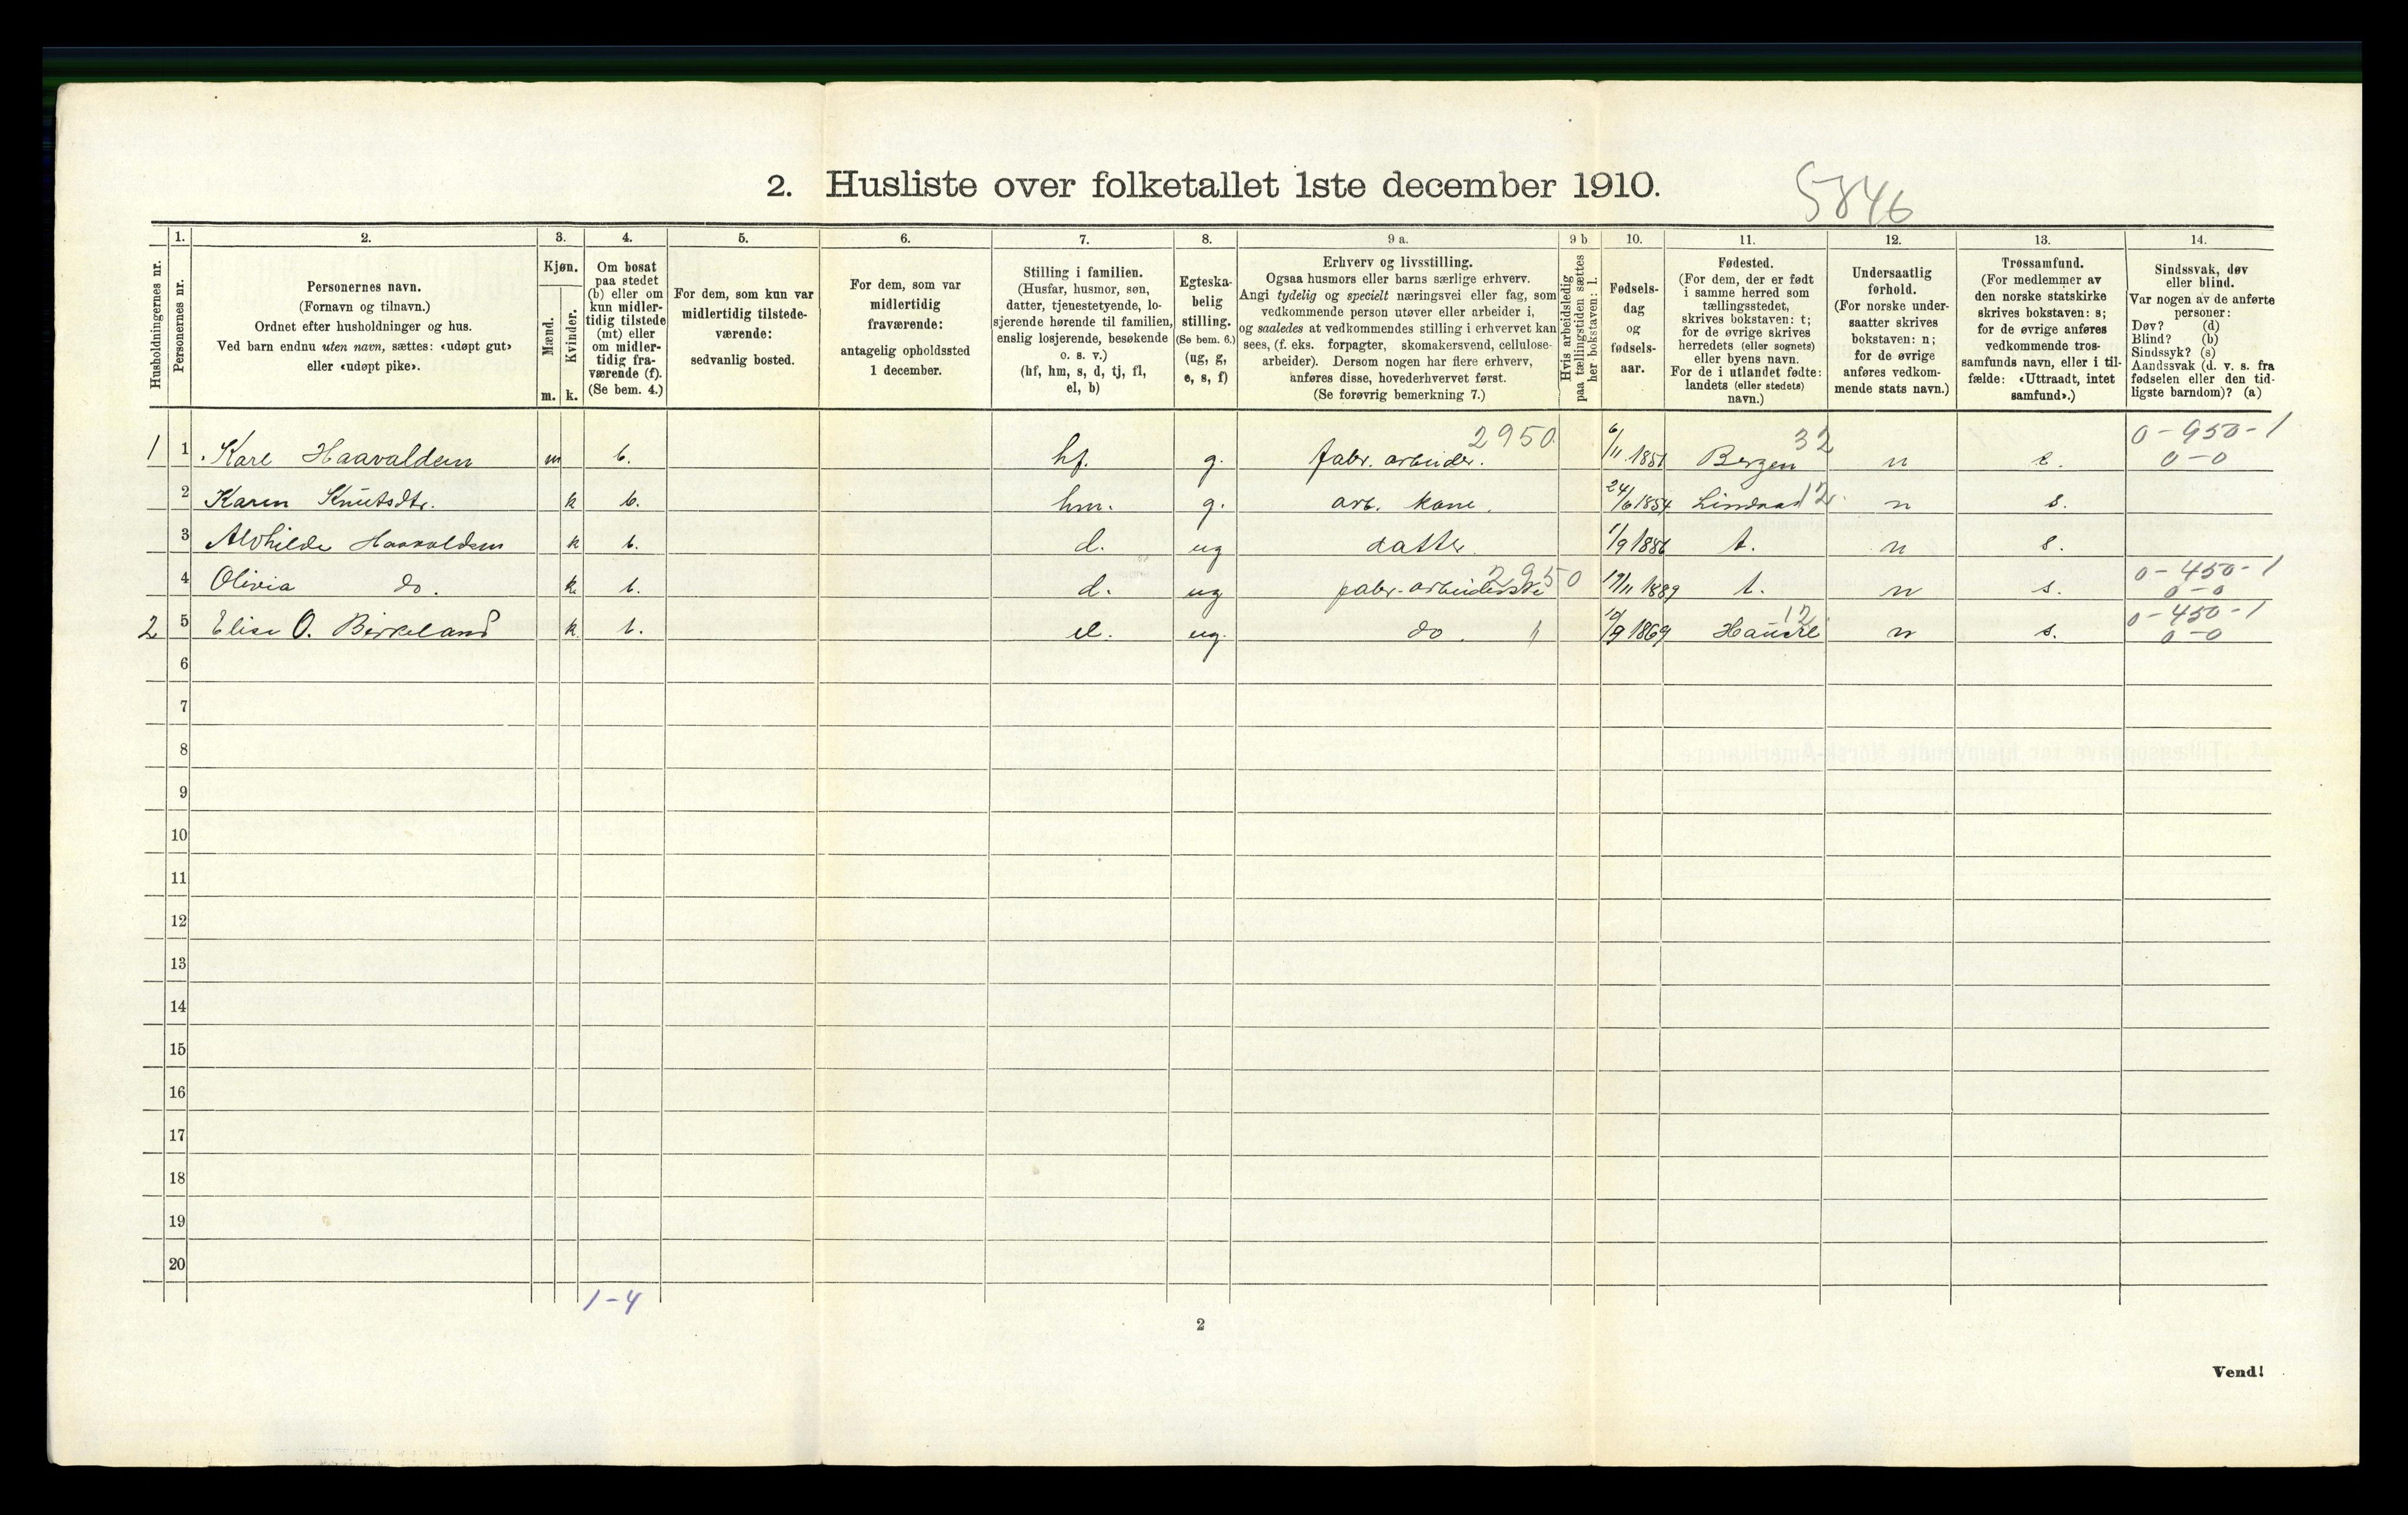 2. Husliste over folketallet 1ste december 1910.
5846
1. 2. 3. 4. 5. 6. 7. 8. 9 a. 9 b 10. 11. 12. 13. 14.
Husholdningernes nr.
Personernes nr.
Personernes navn.
(Fornavn og tilnavn.)
Ordnet efter husholdninger og hus.
Ved barn endnu uten navn, sættes: «udøpt gut»
eller «udøpt pike».
Kjøn.
Mænd.
Kvinder.
m. k.
Om bosat
paa stedet
(b) eller om
kun midler-
tidig tilstede
(mt) eller
om midler-
tidig fra-
værende (f).
(Se bem. 4.)
For dem, som kun var
midlertidig tilstede-
værende:
sedvanlig bosted.
For dem, som var
midlertidig
fraværende:
antagelig opholdssted
1 december.
Stilling i familien.
(Husfar, husmor, søn,
datter, tjenestetyende, lo-
sjerende hørende til familien,
enslig losjerende, besøkende
o. s. v.)
(hf, hm, s, d, tj, fl,
el, b)
Egteska-
belig
stilling.
(Se bem. 6.)
(ug, g,
e, s, f)
Erhverv og livsstilling.
Ogsaa husmors eller barns særlige erhverv.
Angi tydelig og specielt næringsvei eller fag, som
vedkommende person utøver eller arbeider i,
og saaledes at vedkommendes stilling i erhvervet kan
sees, (f. eks. forpagter, skomakersvend, cellulose-
arbeider). Dersom nogen har flere erhverv,
anføres disse, hovederhvervet først.
(Se forøvrig bemerkning 7.)
Hvis arbeidsledig
paa tællingstiden sættes
her bokstaven: l.
Fødsels-
dag
og
fødsels-
aar.
Fødested.
(For dem, der er født
i samme herred som
tællingsstedet,
skrives bokstaven: t;
for de øvrige skrives
herredets (eller sognets)
eller byens navn.
For de i utlandet fødte:
landets (eller stedets)
navn.)
Undersaatlig
forhold.
(For norske under-
saatter skrives
bokstaven: n;
for de øvrige
anføres vedkom-
mende stats navn.)
Trossamfund.
(For medlemmer av
den norske statskirke
skrives bokstaven: s;
for de øvrige anføres
vedkommende tros-
samfunds navn, eller i til-
fælde: «Uttraadt, intet
samfund».)
Sindssvak, døv
eller blind.
Var nogen av de anførte
personer:
Døv? (d)
Blind? (b)
Sindssyk? (s)
Aandssvak (d. v. s. fra
fødselen eller den tid-
ligste barndom)? (a)
2950 32 0-950-1
1 1 Karl Haavaldsen m b. hf. g. fabr. arbeider. 6/11 1851 Bergen n s. 0-0
2 Karen Knutsdtr. k b. hm. g. arb. kone. 24/6 1854 Lindaas 12 n s.
3 Alvhilde Haavaldsen k b. d. ug datter 1/9 1886 t. n s.
2950 0-450-1
4 Olivia do. k b. d. ug fabr. arbeiderske 19/11 1889 t. n s. 0-0
12 0-450-1
2 5 Elise O. Birkeland k b. el. ug. do. 〃 10/9 1869 n s. 0-0
6
7
8
9
10
11
12
13
14
15
16
17
18
19
20
1-4
2
Vend!